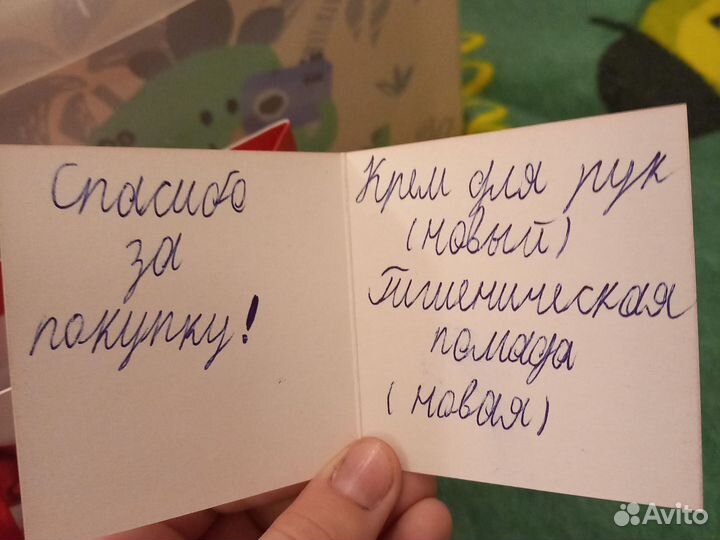 Спасибо
за
покупку!
Крем для рук
(новый)
Гигиеническая
помада
(новая)
Avito